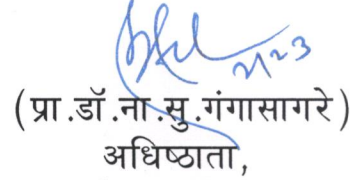 (प्रा.डॉ.ना.सु.गंगासागरे)
अधिष्ठाता,